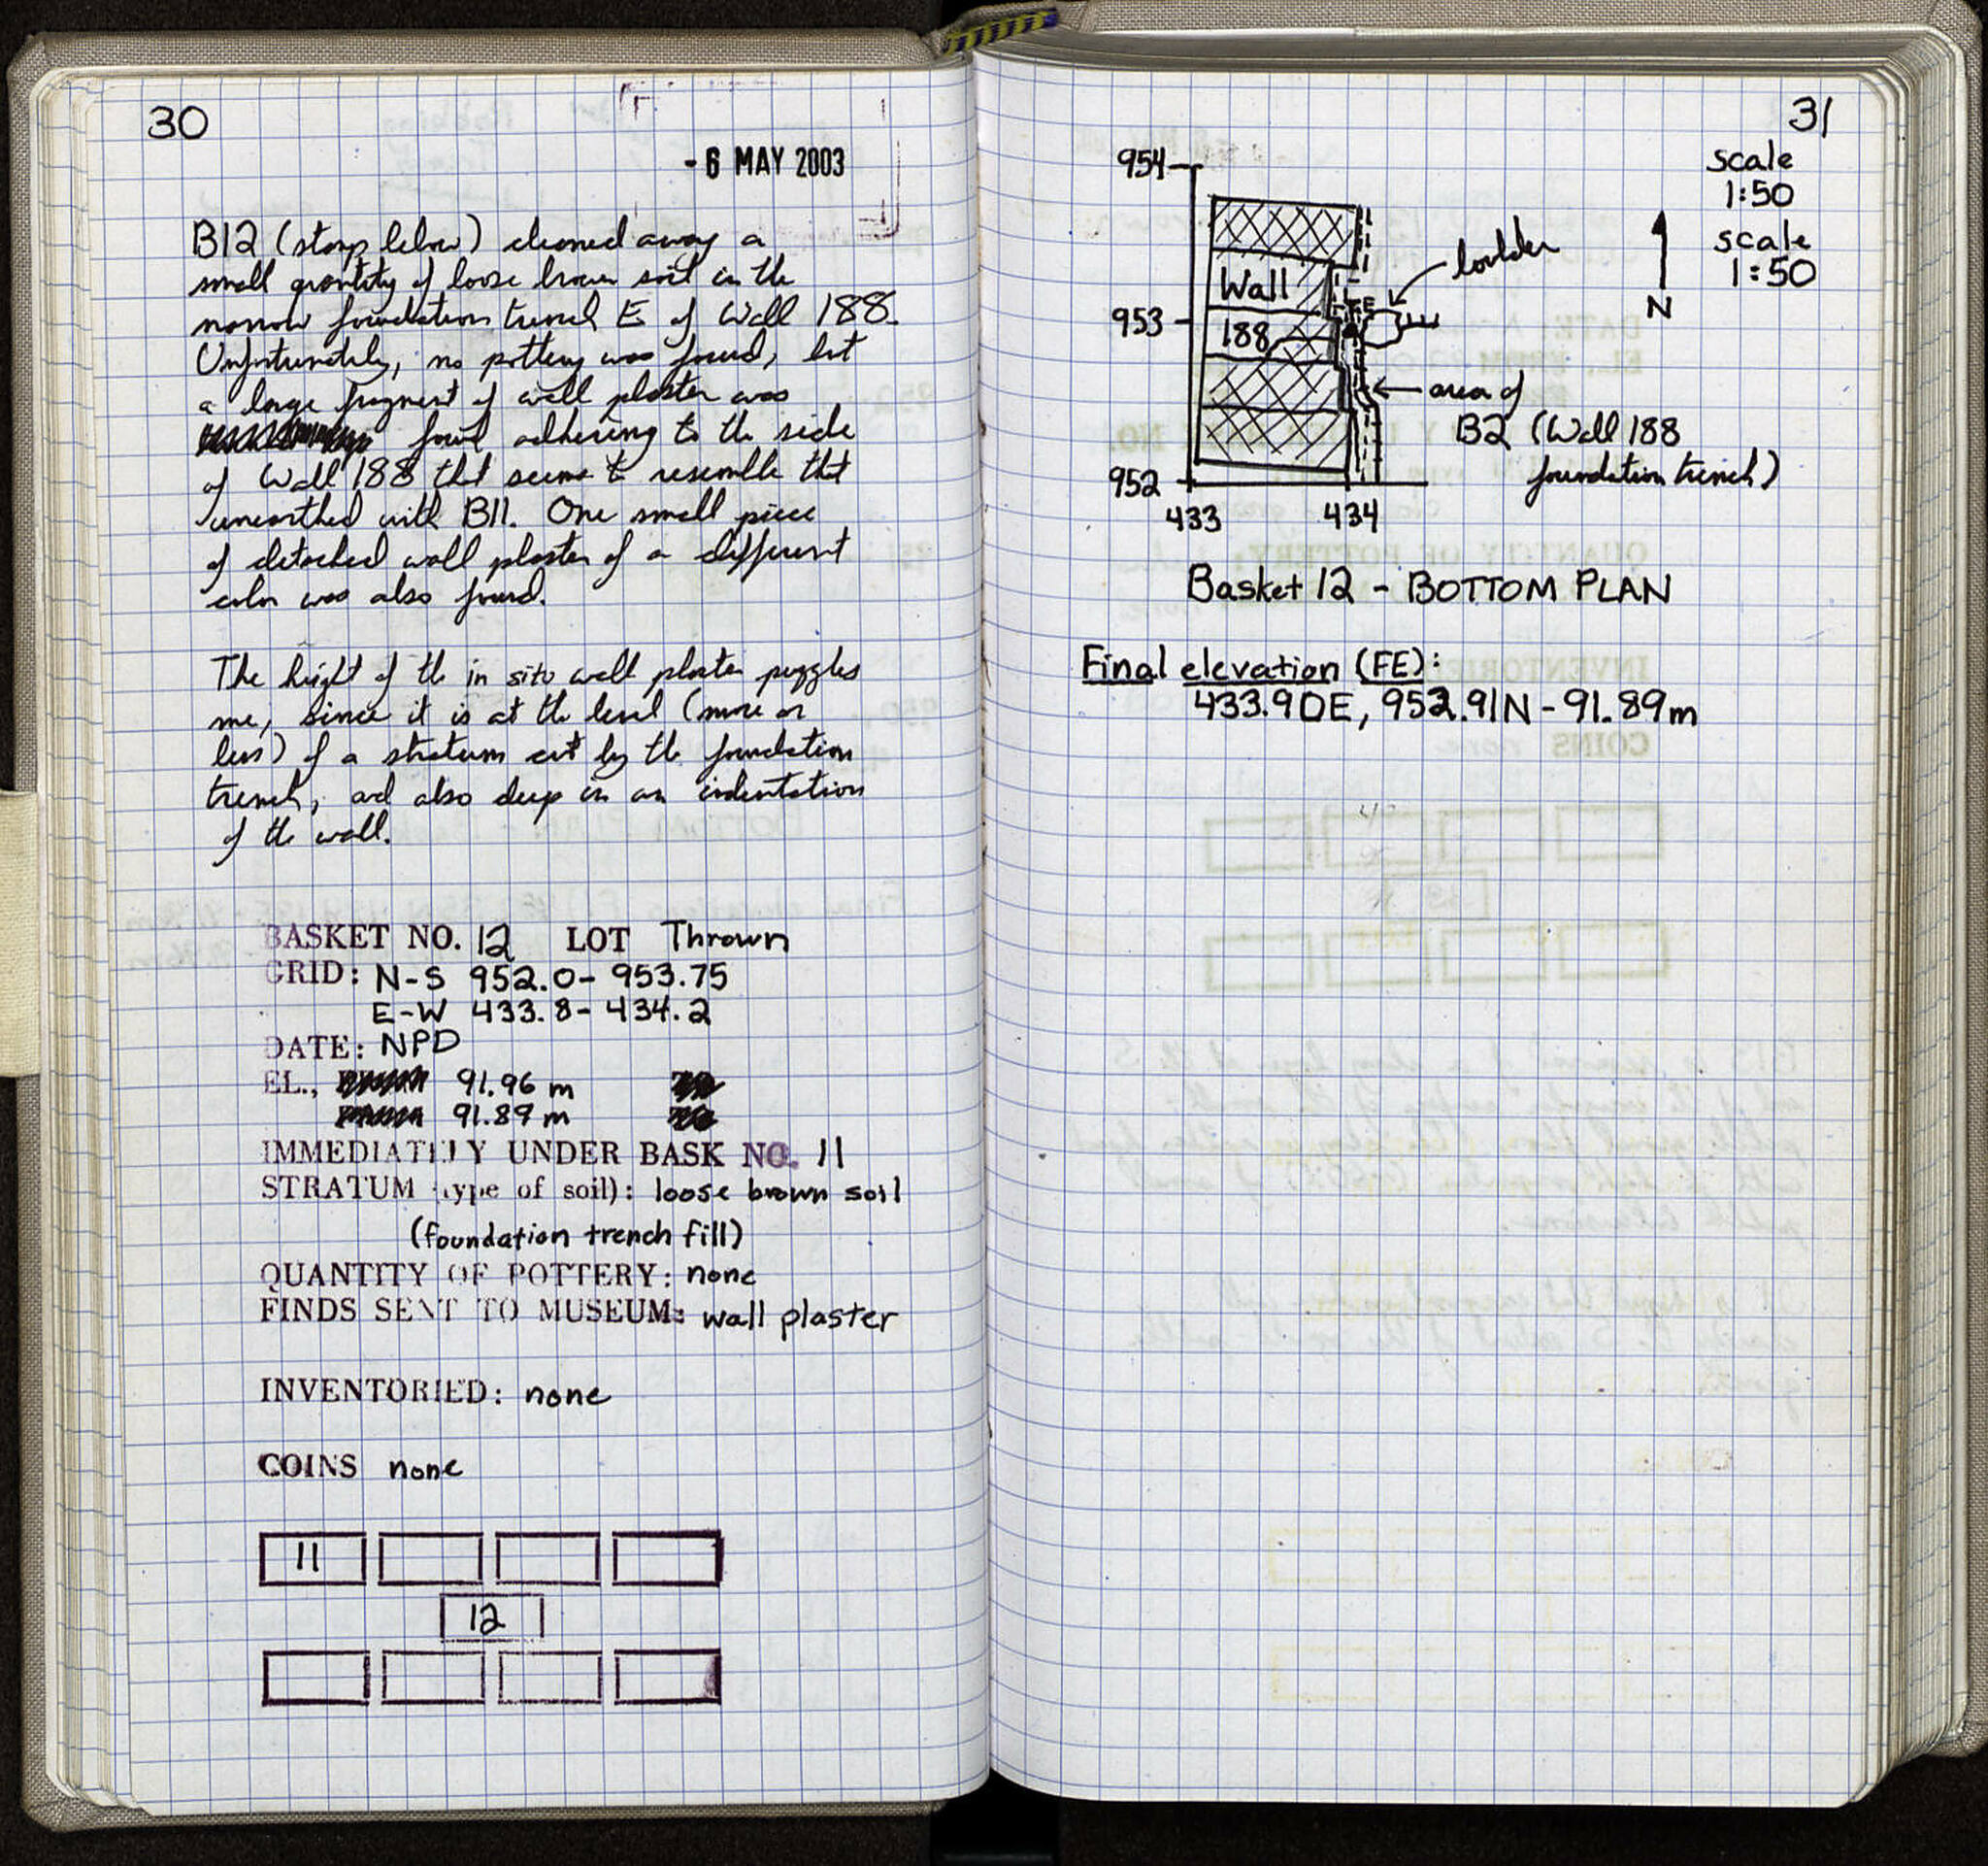 30
- 6 MAY 2003
B12 (stamp below) cleaned away a
small quantity of loose brown soil in the
narrow foundation trench E of Wall 188.
Unfortunately, no pottery was found, but
a large fragment of wall plaster was
found adhering to the side
of Wall 188 that seems to resemble that
unearthed with B11. One small piece
of detached wall plaster of a different
color was also found.
The height of the in situ wall plaster puzzles
me, since it is at the level (more or
less) of a stratum cut by the foundation
trench, and also deep in an indentation
of the wall.
BASKET NO. 12 LOT Thrown
GRID: N-S 952.0-953.75
E-W 433.8-434.2
DATE: NPD
EL., 91.96 m
91.89 m
IMMEDIATELY UNDER BASK NO. 11
STRATUM (type of soil): loose brown soil
(foundation trench fill)
QUANTITY OF POTTERY: none
FINDS SENT TO MUSEUM: wall plaster
INVENTORIED: none
COINS none
11
12
31
scale
1:50
scale
1:50
N
954
953
952
433 434
Wall
188
boulder
area of
B2 (Wall 188
foundation trench)
Basket 12 - BOTTOM PLAN
Final elevation (FE):
433.90E, 952.91N - 91.89m